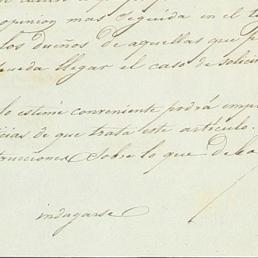 opinion mas seguida en el
los dueños de aquellas que
pueda llegar el caso de solici
lo estime conveniente podrá emp
cias de que trata este articulo.
trucciones sobre lo que deba
indagarse